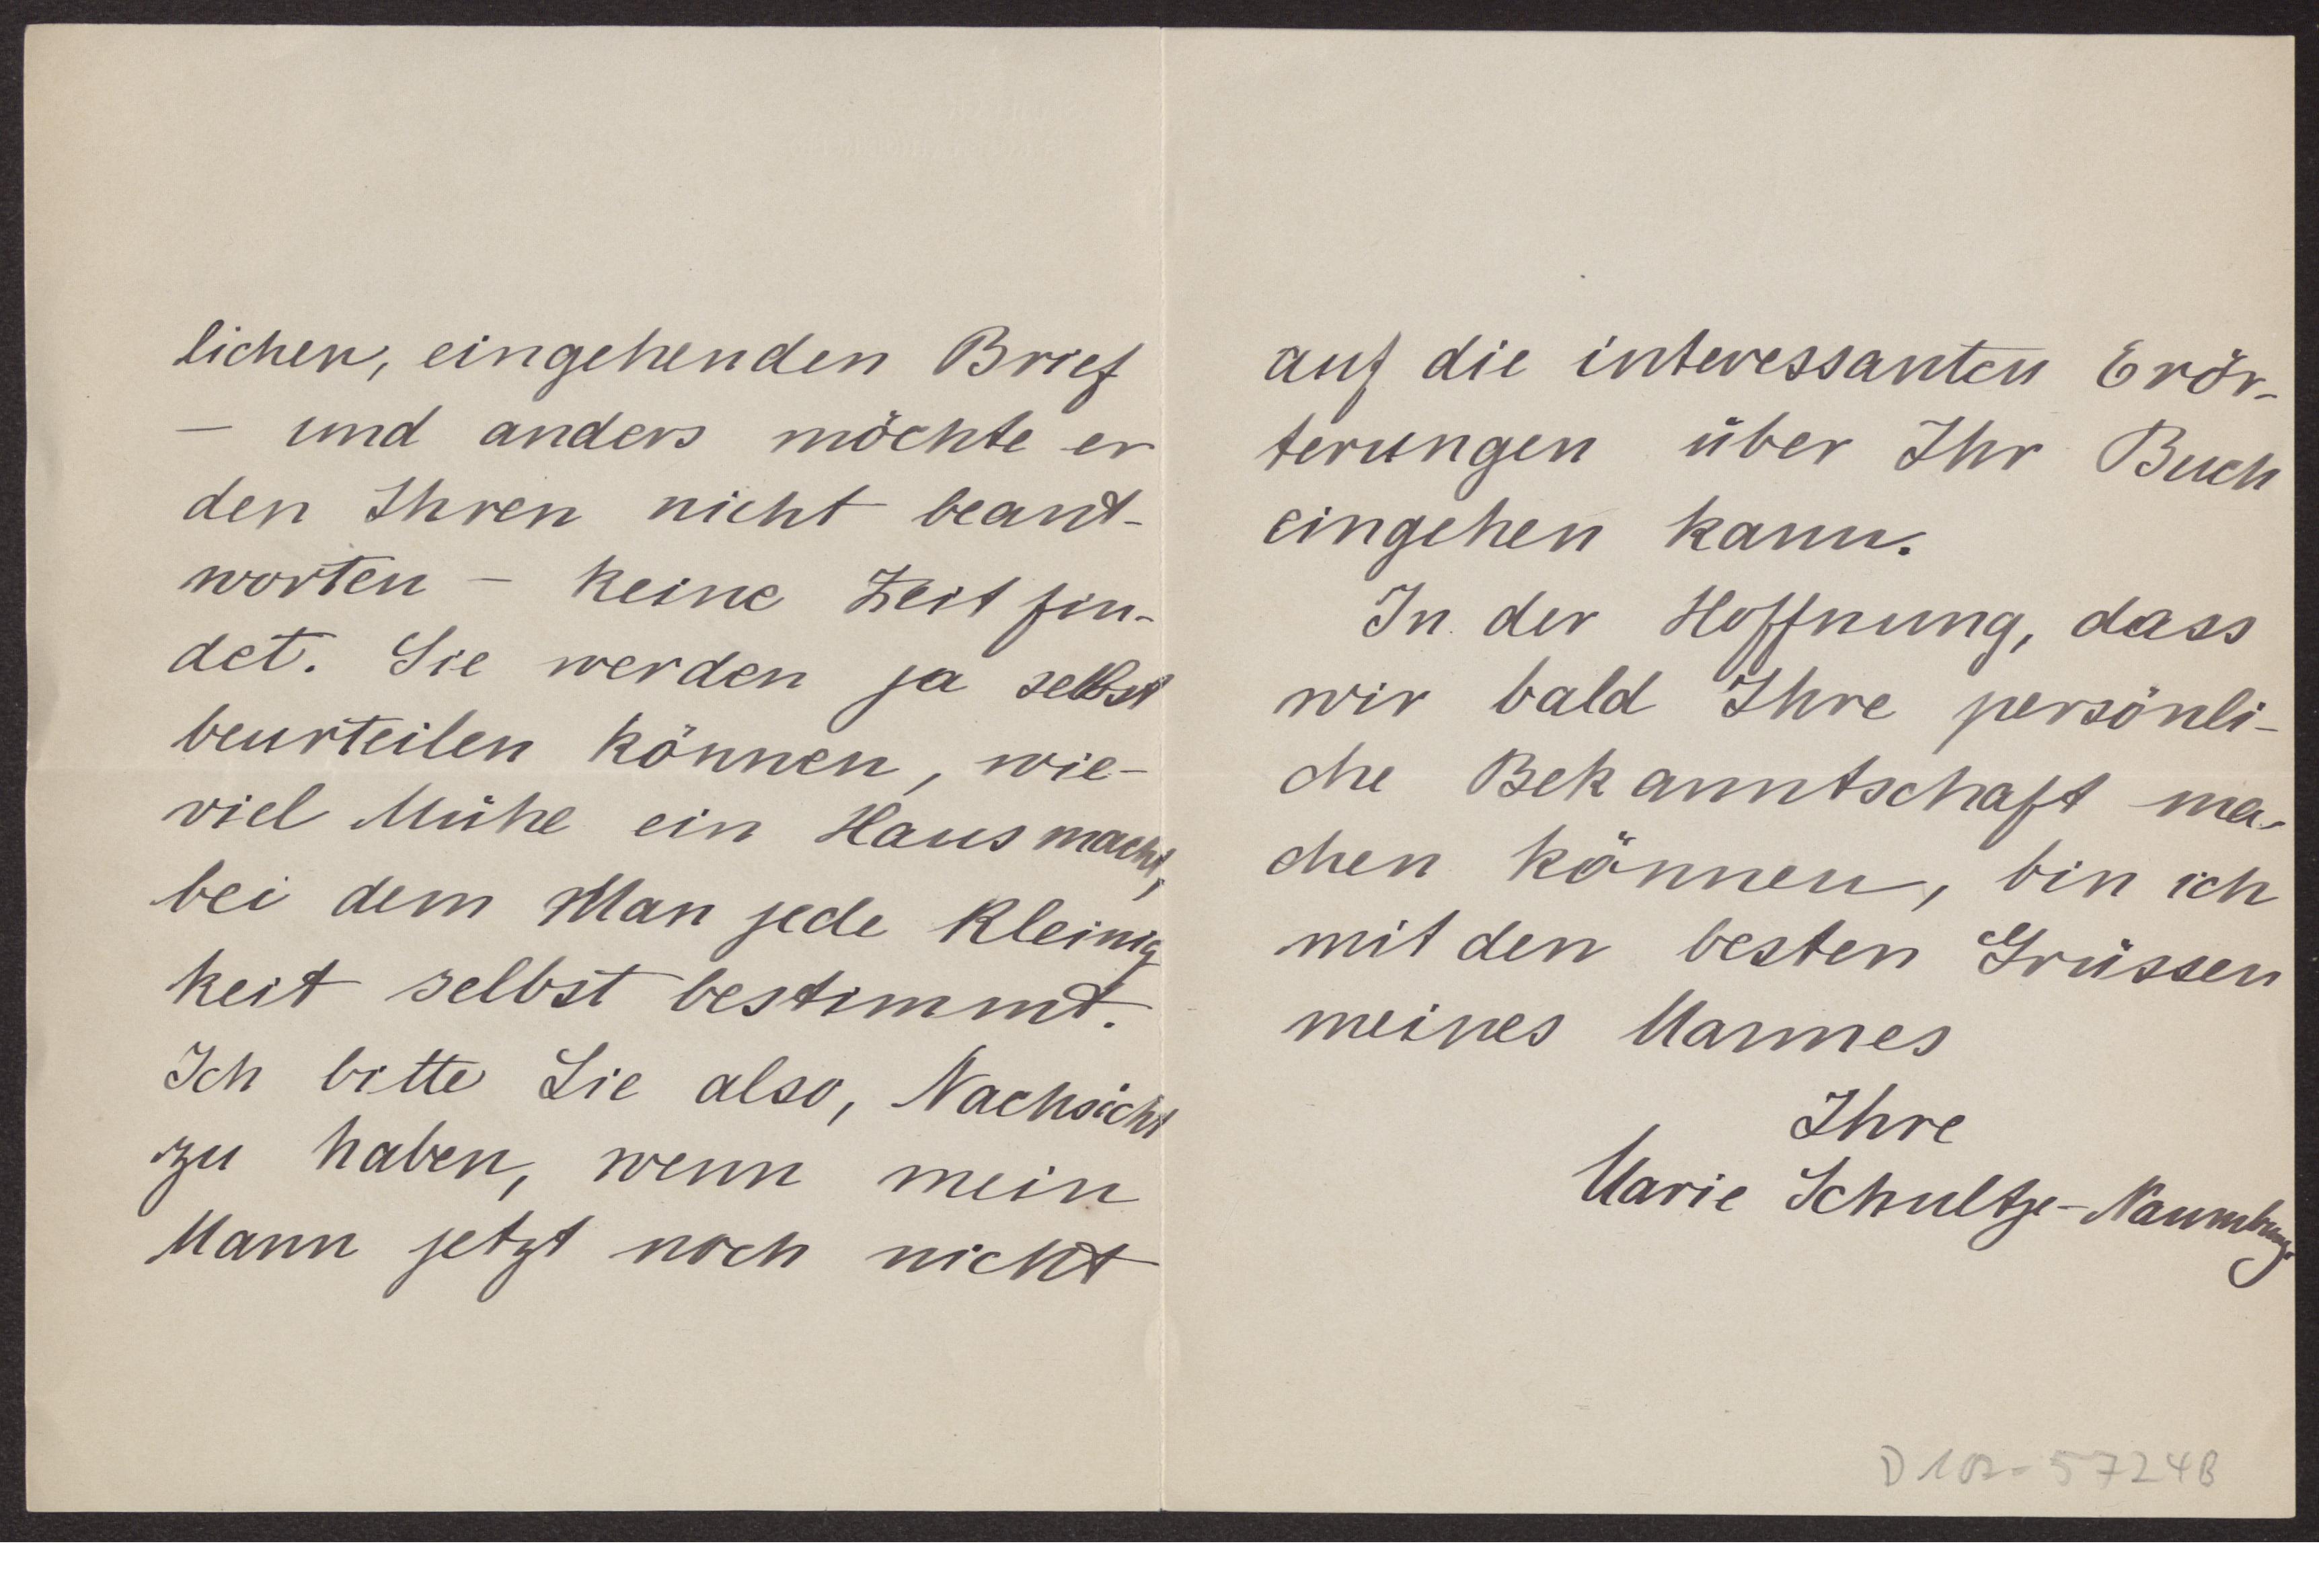 lichen, eingehenden Brief
— und anders möchte er
den Ihren nicht beant-
worten — keine Zeit fin-
det. Sie werden ja selbst
beurteilen können, wie-
viel Mühe ein Haus macht,
bei dem Man jede Kleinig
keit selbst bestimmt.
Ich bitte Sie also, Nachsicht
zu haben, wenn mein
Mann jetzt noch nicht
auf die interessanten Erör-
terungen über Ihr Buch
eingehen kann.
In der Hoffnung, dass
wir bald Ihre persönli-
che Bekanntschaft ma-
chen können, bin ich
mit den besten Grüssen
meines Mannes
Ihre
Marie Schultze-Naumburg.
D 102-5724B